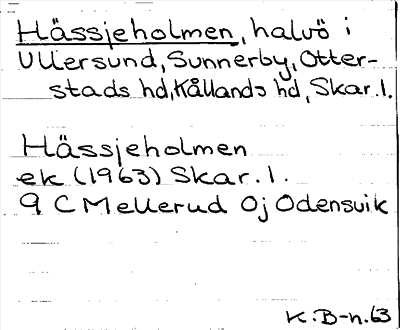 Hässjeholmen, halvö i
Ullersund, Sunnerby, Otter-
stads hd, Kållands hd, Skar. l.
Hässjeholmen
ek (1963) Skar. l.
9 C Mellerud Oj Odensvik
K. B-n. 63